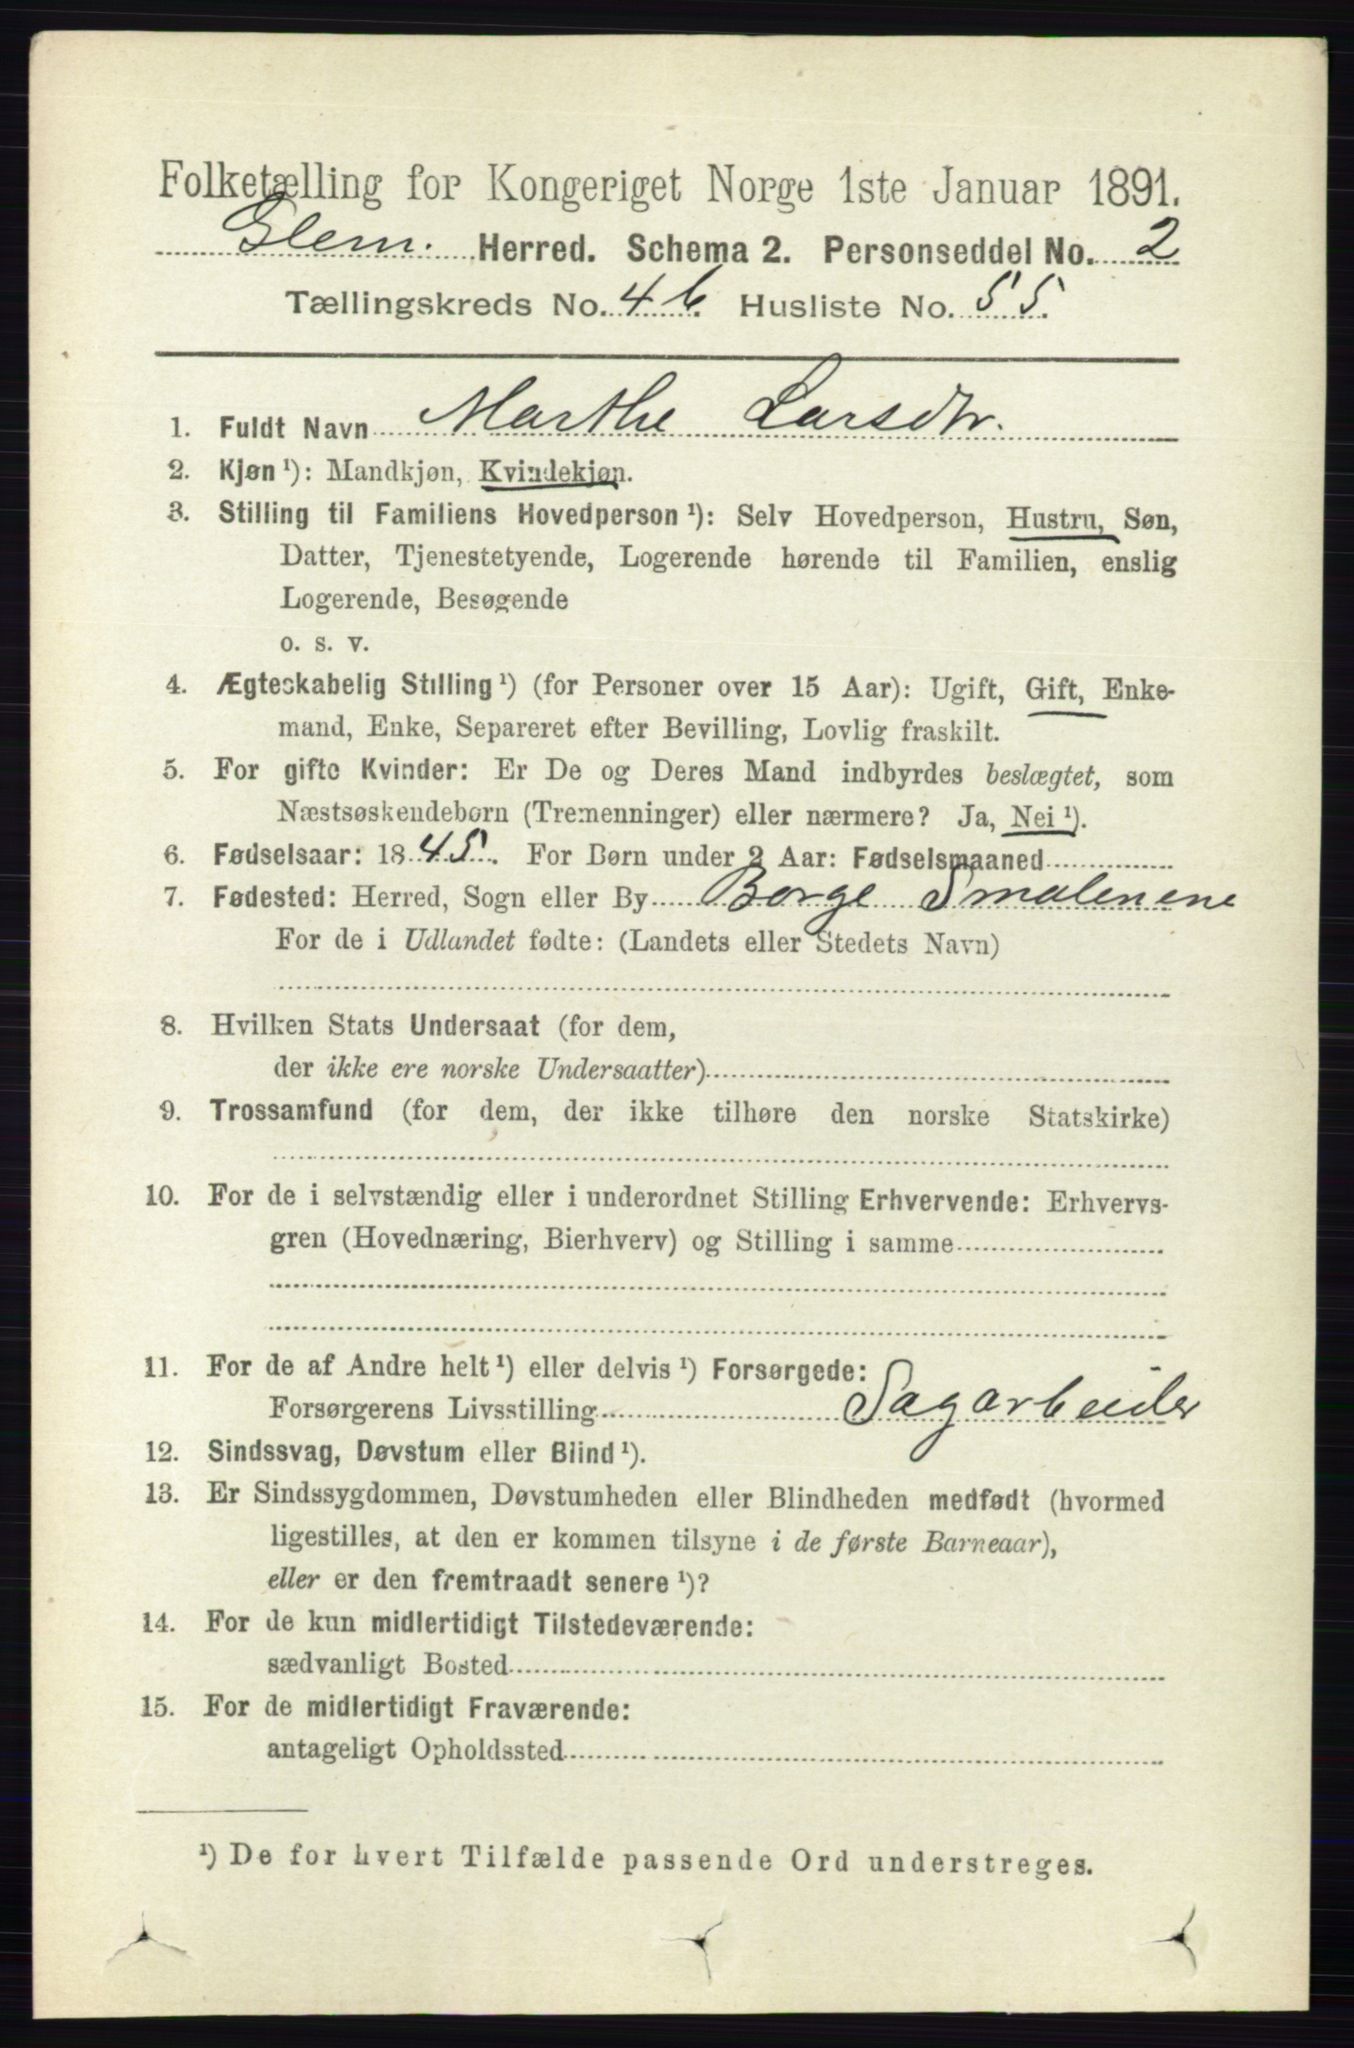 Folketælling for Kongeriget Norge 1ste Januar 1891.
Glem. Herred. Schema 2. Personseddel No. 2
Tællingskreds No. 46. Husliste No. 55.
1. Fuldt Navn Marthe Larsdtr.
2. Kjøn ¹): Mandkjøn, Kvindekjøn.
3. Stilling til Familiens Hovedperson ¹): Selv Hovedperson, Hustru, Søn,
Datter, Tjenestetyende, Logerende hørende til Familien, enslig
Logerende, Besøgende
o. s. v.
4. Ægteskabelig Stilling ¹) (for Personer over 15 Aar): Ugift, Gift, Enke-
mand, Enke, Separeret efter Bevilling, Lovlig fraskilt.
5. For gifte Kvinder: Er De og Deres Mand indbyrdes beslægtet, som
Næstsøskendebørn (Tremenninger) eller nærmere? Ja, Nei ¹).
6. Fødselsaar: 1845. For Børn under 2 Aar: Fødselsmaaned
7. Fødested: Herred, Sogn eller By Borge Smalenene
For de i Udlandet fødte: (Landets eller Stedets Navn)
8. Hvilken Stats Undersaat (for dem,
der ikke ere norske Undersaatter)
9. Trossamfund (for dem, der ikke tilhøre den norske Statskirke)
10. For de i selvstændig eller i underordnet Stilling Erhvervende: Erhvervs-
gren (Hovednæring, Bierhverv) og Stilling i samme
11. For de af Andre helt ¹) eller delvis ¹) Forsørgede:
Forsørgerens Livsstilling Sagarbeider
12. Sindssvag, Døvstum eller Blind ¹).
13. Er Sindssygdommen, Døvstumheden eller Blindheden medfødt (hvormed
ligestilles, at den er kommen tilsyne i de første Barneaar),
eller er den fremtraadt senere ¹)?
14. For de kun midlertidigt Tilstedeværende:
sædvanligt Bosted
15. For de midlertidigt Fraværende:
antageligt Opholdssted
¹) De for hvert Tilfælde passende Ord understreges.